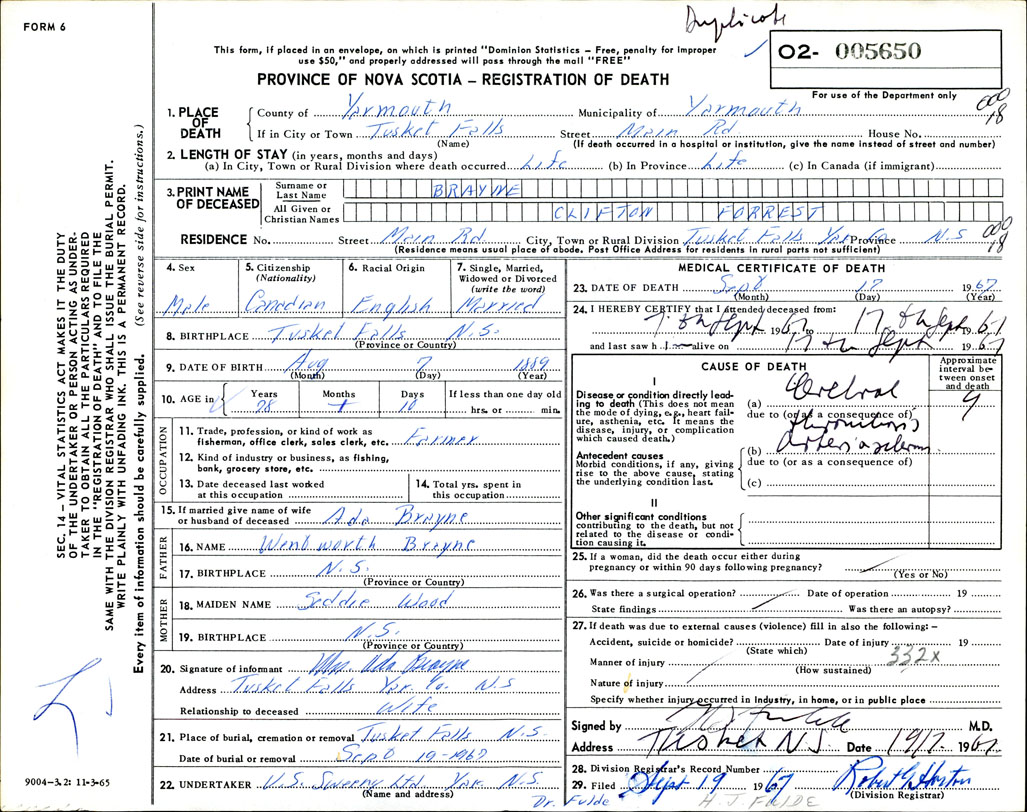 FORM 6
Duplicate
This form, if placed in an envelope, on which is printed "Dominion Statistics – Free, penalty for improper
use $50," and properly addressed will pass through the mail "FREE"
O2- 005650
PROVINCE OF NOVA SCOTIA – REGISTRATION OF DEATH
For use of the Department only
1. PLACE OF DEATH
County of Yarmouth Municipality of Yarmouth 000 18
If in City or Town Tusket Falls Street Main Rd House No.
(Name) (If death occurred in a hospital or institution, give the name instead of street and number)
2. LENGTH OF STAY (in years, months and days)
(a) In City, Town or Rural Division where death occurred Life (b) In Province Life (c) In Canada (if immigrant)
3. PRINT NAME OF DECEASED
Surname or Last Name BRAYNE
All Given or Christian Names CLIFTON FORREST
RESIDENCE No. Street Main Rd City, Town or Rural Division Tusket Falls Yar Co. Province N.S 000 18
(Residence means usual place of abode. Post Office Address for residents in rural parts not sufficient)
4. Sex
Male
5. Citizenship
(Nationality)
Canadian
6. Racial Origin
English
7. Single, Married,
Widowed or Divorced
(write the word)
Married
8. BIRTHPLACE Tusket Falls N.S.
(Province or Country)
9. DATE OF BIRTH Aug 7 1889
(Month) (Day) (Year)
10. AGE in
Years Months Days If less than one day old
78 1 10 hrs. or min.
OCCUPATION
11. Trade, profession, or kind of work as
fisherman, office clerk, sales clerk, etc. Farmer
12. Kind of industry or business, as fishing,
bank, grocery store, etc.
13. Date deceased last worked
at this occupation
14. Total yrs. spent in
this occupation
15. If married give name of wife
or husband of deceased Ada Brayne
FATHER
16. NAME Wentworth Brayne
17. BIRTHPLACE N.S.
(Province or Country)
MOTHER
18. MAIDEN NAME Seddie Wood
19. BIRTHPLACE N.S.
(Province or Country)
20. Signature of informant Mrs Ada Brayne
Address Tusket Falls Yar. Co. N.S
Relationship to deceased Wife
21. Place of burial, cremation or removal Tusket Falls N.S.
Date of burial or removal Sept 19-1967
22. UNDERTAKER U.S. Sweeny Ltd. Yar. N.S
(Name and address)
MEDICAL CERTIFICATE OF DEATH
23. DATE OF DEATH Sept 17 1967
(Month) (Day) (Year)
24. I HEREBY CERTIFY that I attended deceased from:
7th Sept 1967 to 17th Sept 1967
and last saw h alive on 17th Sept 1967
CAUSE OF DEATH
Approximate
interval between
onset
and death
I
Disease or condition directly leading
to death (This does not mean
the mode of dying, e.g., heart failure,
asthenia, etc. It means the
disease, injury, or complication
which caused death.)
(a) Cerebral
due to (or as a consequence of)
thrombosis
Antecedent causes
Morbid conditions, if any, giving
rise to the above cause, stating
the underlying condition last.
(b)
due to (or as a consequence of)
(c)
II
Other significant conditions
contributing to the death, but not
related to the disease or condition
causing it.
25. If a woman, did the death occur either during
pregnancy or within 90 days following pregnancy?
(Yes or No)
26. Was there a surgical operation? Date of operation 19
State findings Was there an autopsy?
27. If death was due to external causes (violence) fill in also the following: –
Accident, suicide or homicide? Date of injury 19
(State which) 332X
Manner of injury
(How sustained)
Nature of injury
Specify whether injury occurred in Industry, in home, or in public place
Signed by M.D.
Address Tusket N.S Date 19/9 1967
28. Division Registrar's Record Number
29. Filed Sept 19 1967 Robert G. Horton
(Division Registrar)
Dr. Fulde H.J. FULDE
SEC. 14 – VITAL STATISTICS ACT MAKES IT THE DUTY
OF THE UNDERTAKER OR PERSON ACTING AS UNDERTAKER
TO OBTAIN ALL THE PARTICULARS REQUIRED
IN THE "REGISTRATION OF DEATH" AND TO FILE THE
SAME WITH THE DIVISION REGISTRAR WHO SHALL ISSUE THE BURIAL PERMIT.
WRITE PLAINLY WITH UNFADING INK. THIS IS A PERMANENT RECORD.
Every item of information should be carefully supplied. (See reverse side for instructions.)
9004-3.2: 11-3-65